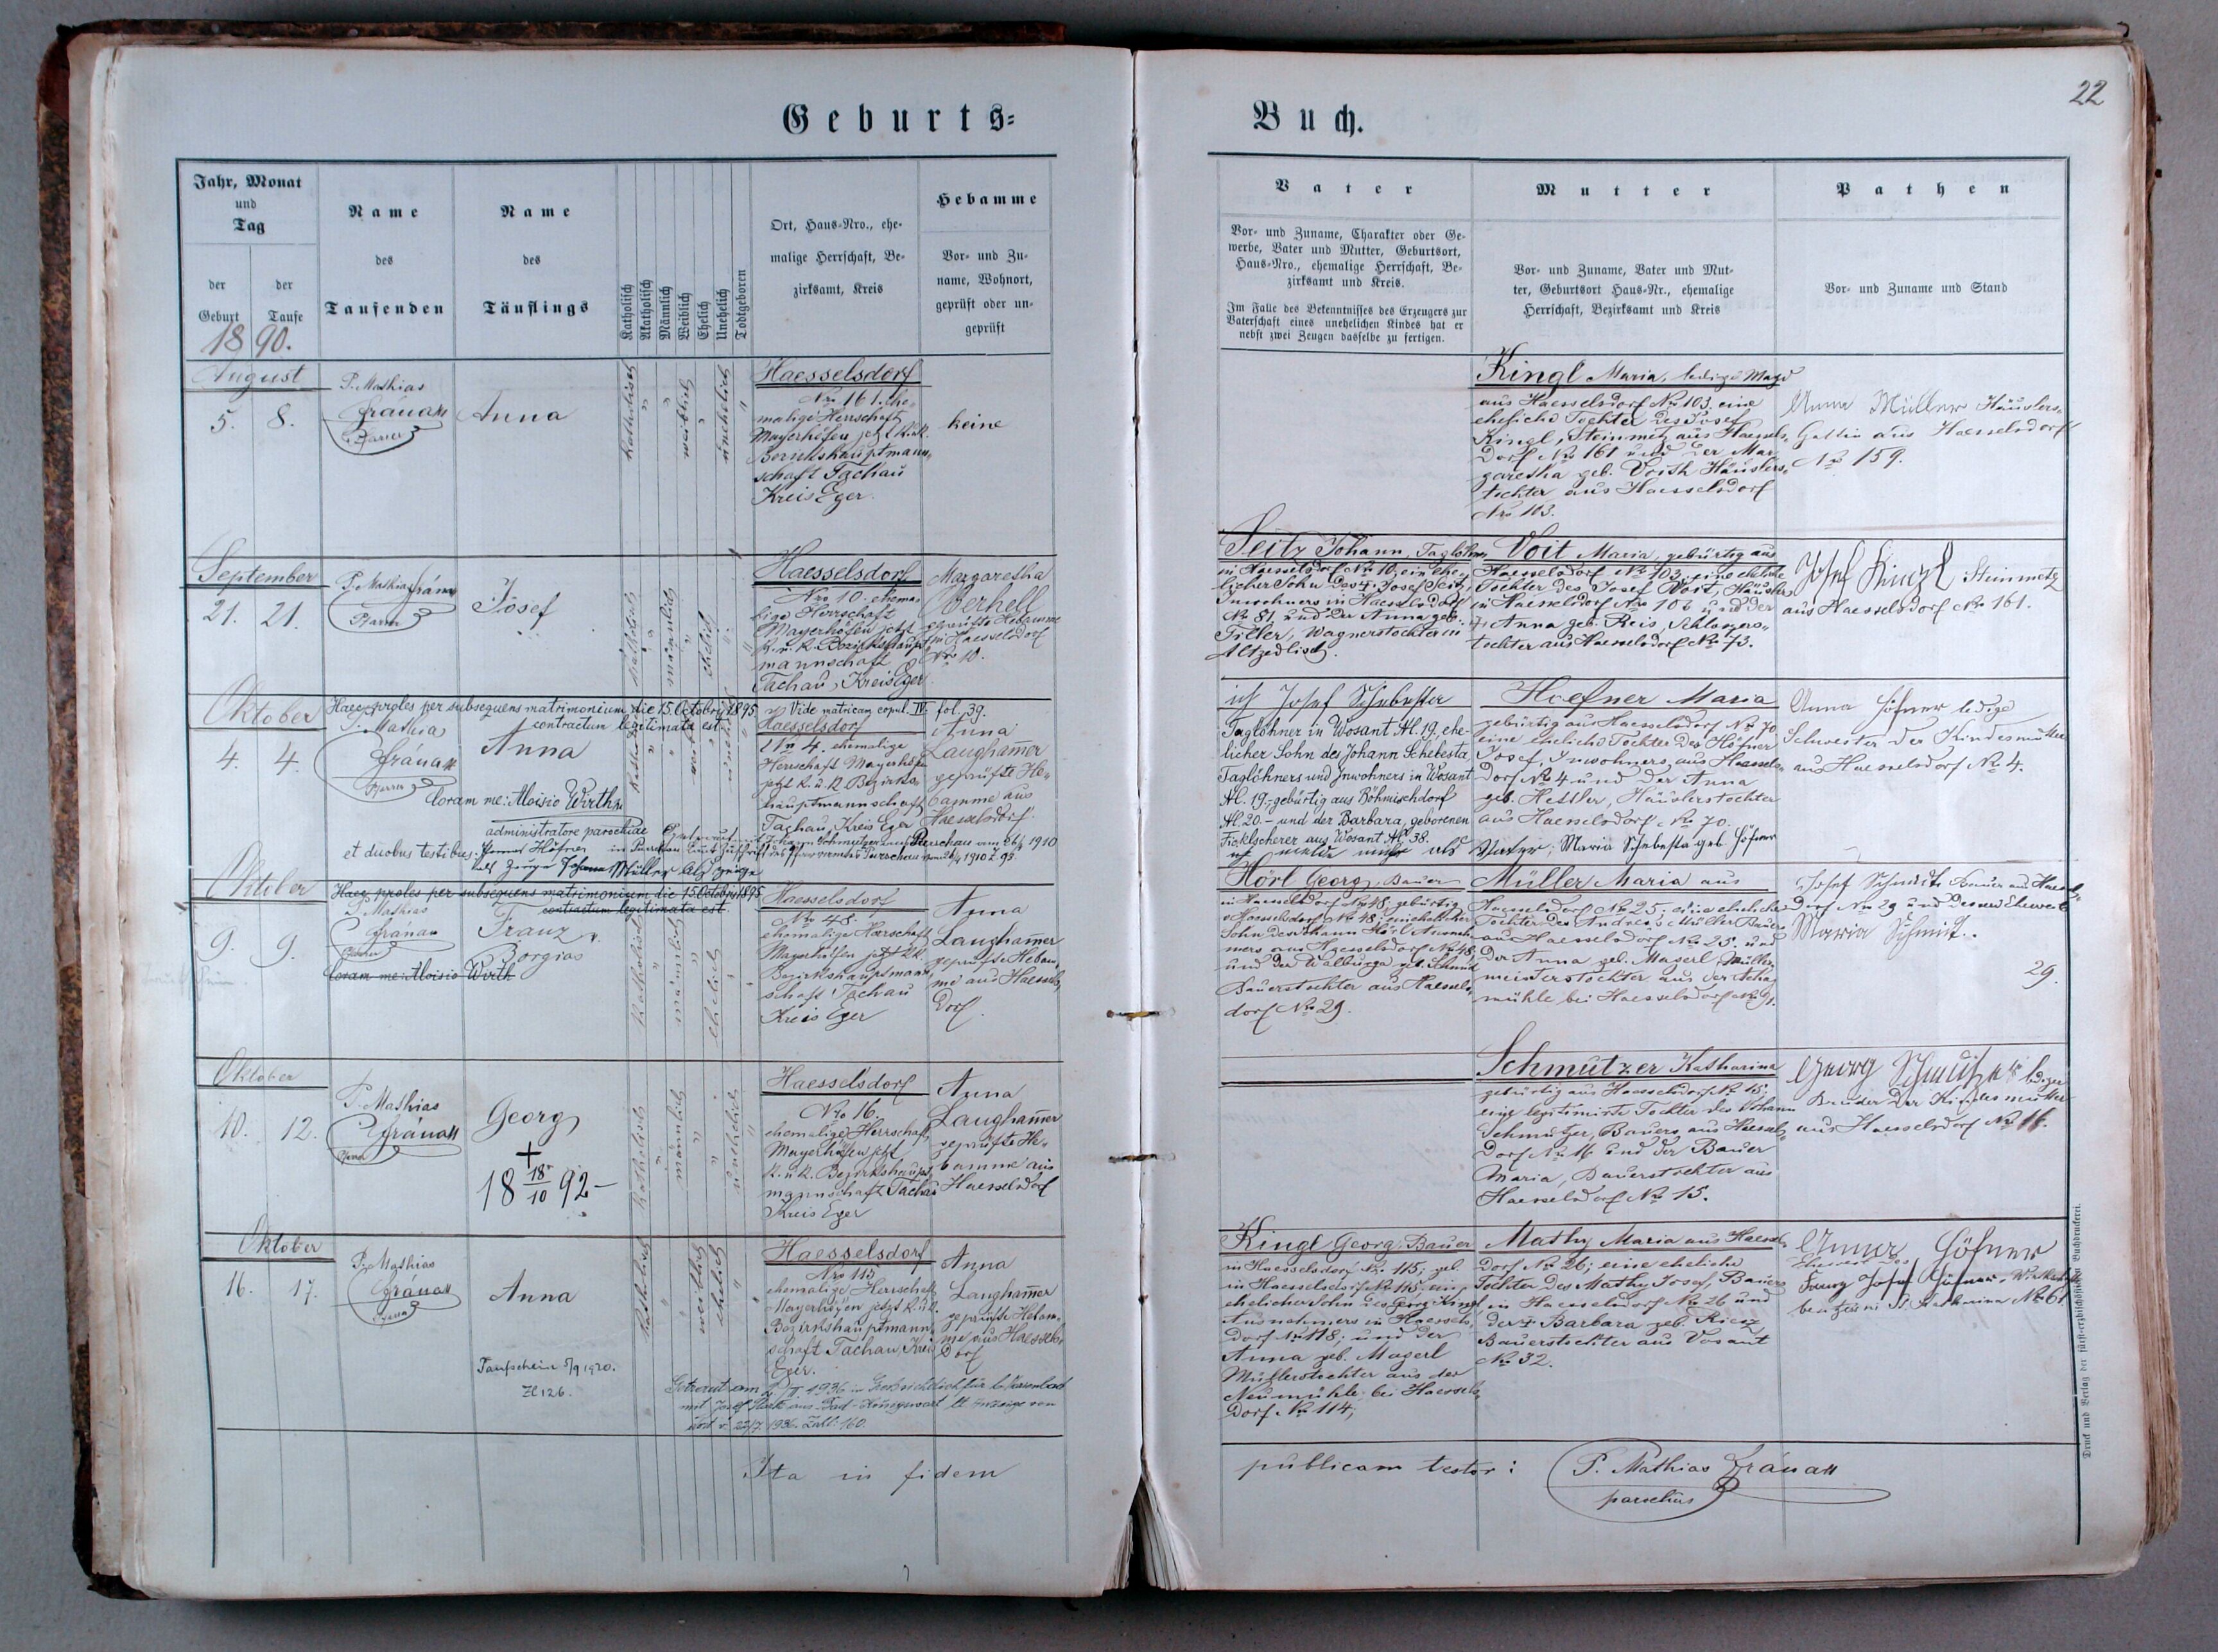 Geburts=
Jahr, Monat
und
Tag
der
Geburt
der
Taufe
1890.
Name
des
Taufenden
Name
des
Täuflings
Katholisch
Akatholisch
Männlich
Weiblich
Ehelich
Unehelich
Todtgeboren
Ort, Haus-Nro., ehe-
malige Herrschaft, Be-
zirksamt, Kreis
Hebamme
Vor- und Zu-
name, Wohnort,
geprüft oder un-
geprüft
August
5. 8.
P. Mathias
Pfarrer
Anna
katholisch
weiblich
unehelich
Haesselsdorf
Nro 161. ehe-
malige Herrschaft
Mayerhöfen jetzt k.u.k.
Bezirkshauptmann-
schaft Tachau
Kreis Eger.
keine
September
21. 21.
P. Mathias
Pfarrer
Josef
katholisch
männlich
ehelich
Haesselsdorf
Nro 10. ehema-
lige Herrschaft
Mayerhöfen jetzt
k. u. k. Bezirkshaupt-
mannschaft
Tachau, Kreis Eger
Margaretha
Oberhell
geprüfte Hebamme
in Haesselsdorf
Nro 10.
Oktober
4. 4.
Haec proles per subsequens matrimonium die 15. Octobris 1895
contractum legitimata est.
Vide matricam copul. IV. fol. 39.
P. Mathias
Pfarrer
Anna
Haesselsdorf
Nro 4. ehemalige
Herrschaft Mayerhöfen
jetzt k. u. k. Bezirks-
hauptmannschaft
Tachau, Kreis Eger
Anna
Langham̄er
geprüfte He-
bamme aus
Haesselsdorf.
Coram me: Aloisio Wirth
administratore parochiae
et duobus testibus: Höfner
als Zeuge Johann Müller als Zeuge
Oktober
9. 9.
Haec proles per subsequens matrimonium die 15 Octobris 1895
contractum legitimata est.
P. Mathias
Franz
Borgias
Coram me: Aloisio Wirth
katholisch
ehelich
Haesselsdorf
Nro 48.
ehemalige Herrschaft
Mayerhöfen jetzt k.k.
Bezirkshauptmann-
schaft Tachau
Kreis Eger
Anna
Langham̄er
geprüfte Hebam-
me aus Haessels-
dorf.
Oktober
10. 12.
P. Mathias
Pfarrer
Georg
†
18 18/10 92-
katholisch
männlich
unehelich
Haesselsdorf
Nro 16.
ehemalige Herrschaft
Mayerhöfen jetzt
k. u. k. Bezirkshaupt-
mannschaft Tachau
Kreis Eger
Anna
Langham̄er
geprüfte He-
bamme aus
Haesselsdorf
Oktober
16. 17.
P. Mathias
Pfarrer
Anna
Taufschein 5/9 1920.
Zl 126.
katholisch
weiblich
ehelich
Haesselsdorf
Nro 115
ehemalige Herrschaft
Mayerhöfen jetzt k.u.k.
Bezirkshauptmann-
schaft Tachau, Kreis
Eger.
Anna
Langham̄er
geprüfte Hebam-
me aus Haessels-
dorf
Ita in fidem
Buch.
22
Vater
Vor- und Zuname, Charakter oder Ge-
werbe, Vater und Mutter, Geburtsort,
Haus-Nro., ehemalige Herrschaft, Be-
zirksamt und Kreis.
Im Falle des Bekenntnisses des Erzeugers zur
Vaterschaft eines unehelichen Kindes hat er
nebst zwei Zeugen dasselbe zu fertigen.
Mutter
Vor- und Zuname, Vater und Mut-
ter, Geburtsort Haus-Nr., ehemalige
Herrschaft, Bezirksamt und Kreis
Pathen
Vor- und Zuname und Stand
Kingl Maria, ledige Magd
aus Haesselsdorf Nro 103. eine
eheliche Tochter des Josef
Kingl, Steinmetz aus Haessels-
dorf Nro 161 und der Mar-
garetha geb. Voith Häuslers-
tochter aus Haesselsdorf
Nro 103.
Anna Müller Häuslers-
Gattin aus Haesselsdorf
Nro 159.
Seitz Johann, Taglöhner
in Haesselsdorf Nro 10, ein ehe-
licher Sohn des † Josef Seitz,
Inwohners in Haesselsdorf
Nro 81, und der Anna geb.
Wagnerstochter in
Altzedlisch.
Voit Maria, gebürtig aus
Haesselsdorf Nro 103, eine eheliche
Tochter des Josef Voit, Häuslers
in Haesselsdorf Nro 106 und der
† Anna geb. Reis, Schlossers-
tochter aus Haesselsdorf Nro 73.
Josef Kingl Steinmetz
aus Haesselsdorf Nro 161.
ich Josef Schebesta
Taglöhner in Wosant Nr. 19, ehe-
licher Sohn des Johann Schebesta,
Taglöhners und Inwohners in Wosant
Nr. 19.- gebürtig aus Böhmischdorf
Nr. 20. - und der Barbara, geborenen
Ficklscherer aus Wosant Nr. 38.
Hoefner Maria
gebürtig aus Haesselsdorf Nro 70
eine eheliche Tochter des Höfner
Josef, Inwohners, aus Haessels-
dorf Nro 4 und der Anna
geb. Hettler, Häuslerstochter
aus Haesselsdorf Nro 70.
Vater: Maria Schebesta geb. Höfner
Anna Höfner ledige
Schwester der Kindesmutter
aus Haesselsdorf No 4.
Hörl Georg, Bauer
in Haesselsdorf No 48, gebürtig
Haesselsdorf No 48; ein ehelicher
Sohn des Johann Hörl Ausneh-
mers aus Haesselsdorf No 48,
und der Walburga geb. Schmid
Bauerstochter aus Haessels-
dorf Nro 29.
Müller Maria aus
Haesselsdorf No 25, eine eheliche
Tochter des Andreas Müller Bauers
aus Haesselsdorf No 25. und
der Anna geb. Magerl, Müller-
meisterstochter aus der
mühle bei Haesselsdorf
Josef Schmidt Bauer aus Haessels-
dorf Nro 29 und dessen Eheweib
Maria Schmidt.
29.
Schmutzer Katharina
gebürtig aus Haesselsdorf No 15;
eine legitimirte Tochter des Johann
Schmutzer, Bauers aus Haessels-
dorf No 16 und der Bauer
Maria, Bauerstochter aus
Haesselsdorf Nro 15.
Georg Schmutzer lediger
Bruder der Kindesmutter
aus Haesselsdorf No 16.
Kingl Georg, Bauer
in Haesselsdorf No 115; geb.
in Haesselsdorf No 115, ein
ehelicher Sohn des Georg Kingl
Ausnehmers in Haessels-
dorf No 118; und der
Anna geb. Magerl
Müllerstochter aus der
Neumühle bei Haessels-
dorf Nro 114;
Mathy Maria aus Haessels-
dorf No 26; eine eheliche
Tochter des Mathy Josef, Bauers
in Haesselsdorf Nro 26 und
der † Barbara geb.
Bauerstochter aus Wosant
No 32.
Anna Höfner
Eheweib des
Josef Höfner, Wirthschafts-
besitzer in St. Katharina No 61.
publicam testor: P. Mathias
parochus
Druck und Verlag der fürst-erzbischöflichen Buchdruckerei.